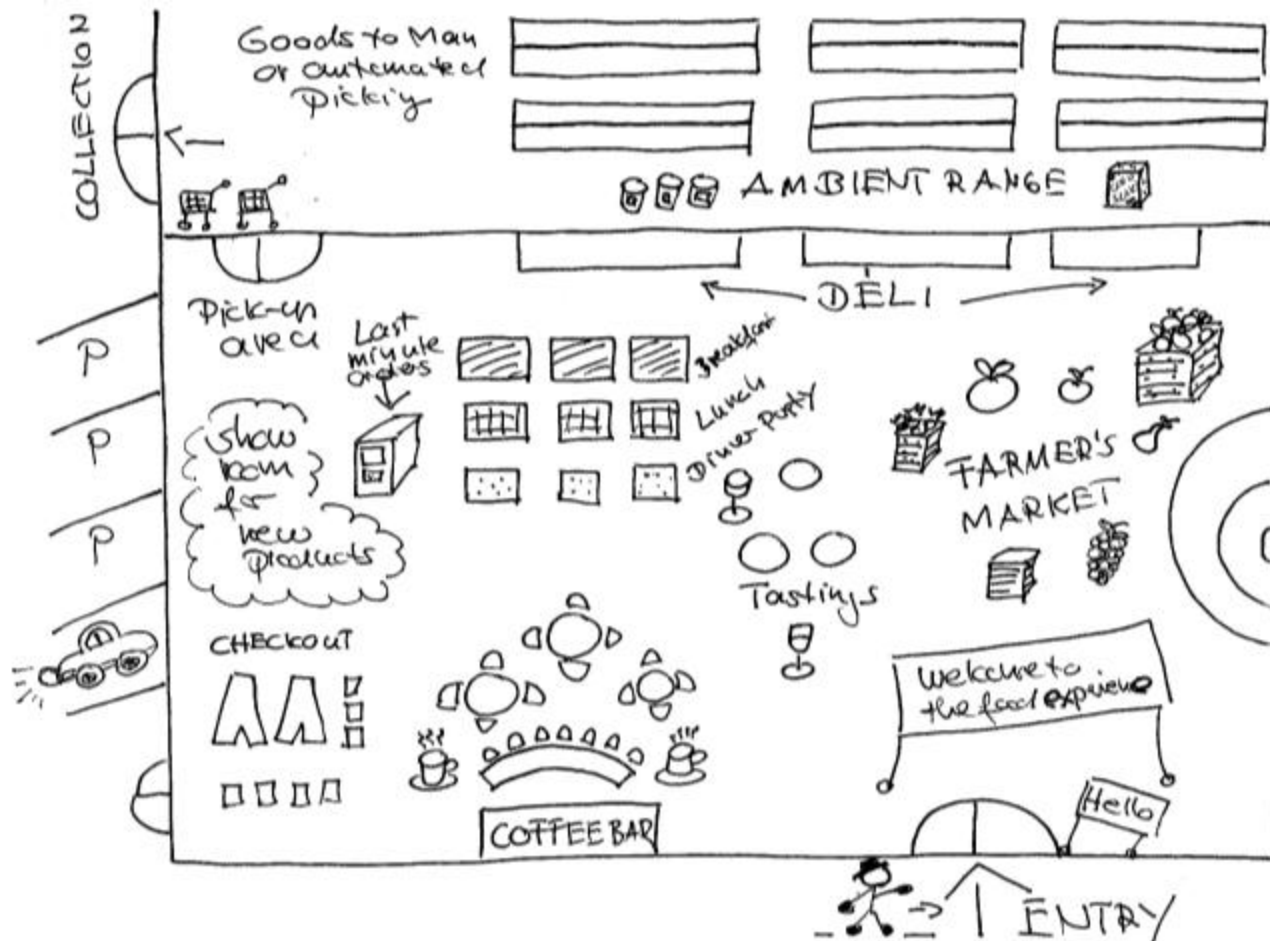 COLLECTION
Goods to Man
or automated
Picking
AMBIENT RANGE
DELI
Pick-up
area
Last
minute
orders
Breakfast
Lunch
Dinner Party
show
room
for
new
products
P
P
P
FARMER'S
MARKET
Tastings
CHECKOUT
welcome to
the food experience
Hello
COFFEE BAR
ENTRY